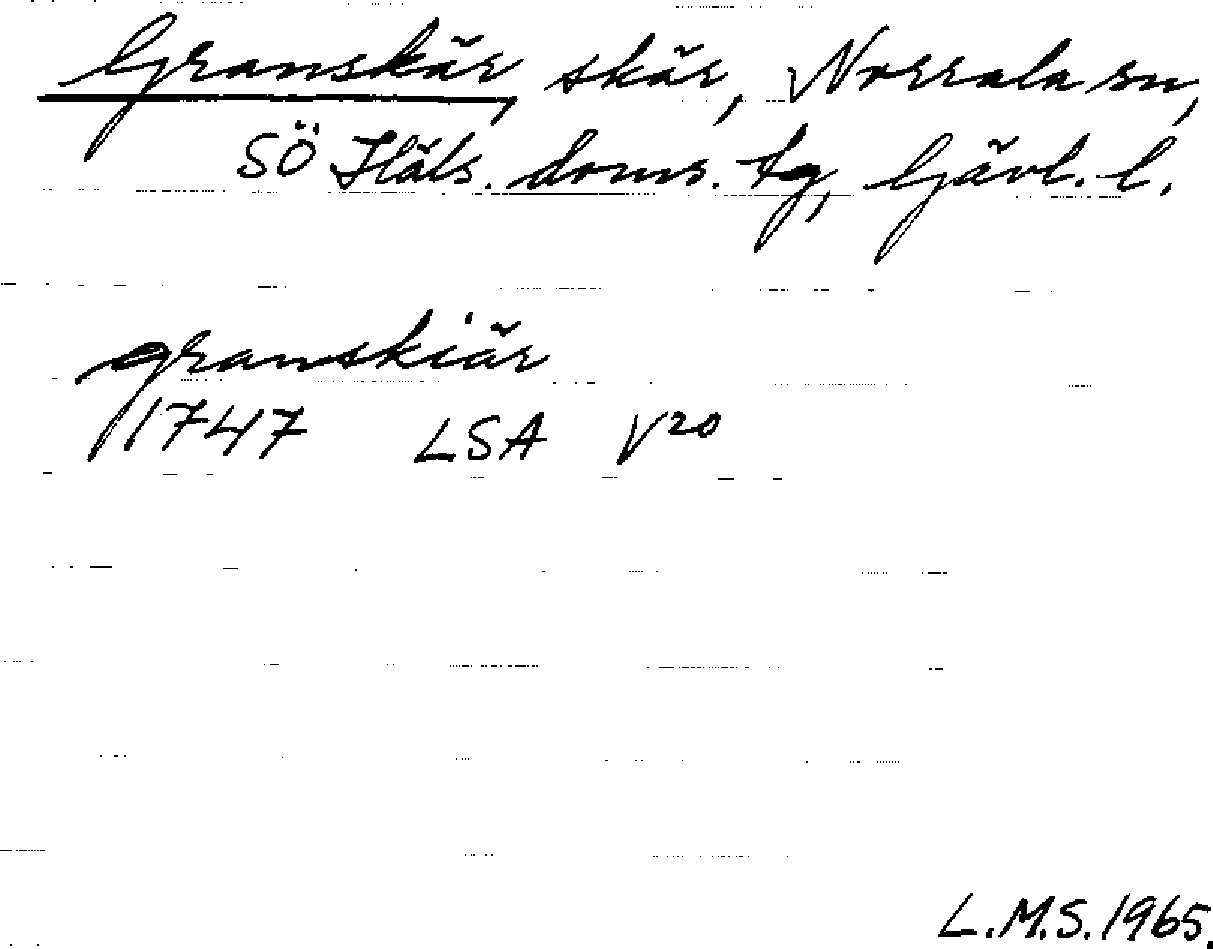 Granskär, skär, Norrala sn,
SÖ Häls. doms. tg, Gävl. l.
granskiär
1747 LSA V20
L.M.S. 1965.